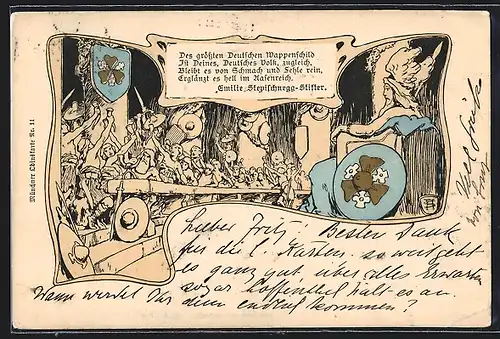 Des größten Deutschen Wappenschild
Ist Deines, Deutsches Volk, zugleich,
Bleibt es von Schmach und Fehle rein,
Erglänzt es hell im Rafenreich.
Emilie Stepischnegg-Stifter.
Münchner Odinskarte No. 11
Lieber Fritz! Besten Dank
für die l. Karten. soweit geht
es ganz gut über alles Erwarten
sogar hoffentlich hält es an.
Wann werdet Ihr denn endlich kommen?
Grüße
von